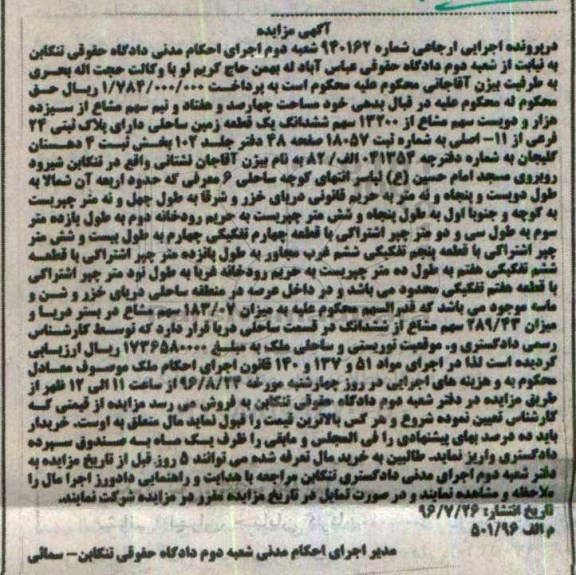 آگهی مزایده
درپرونده اجرایی ارجاعی شماره ۹۴۰۱۶۲ شعبه دوم اجرای احکام مدنی دادگاه حقوقی تنکابن
به نیابت از شعبه دوم دادگاه حقوقی عباس آباد له بهمن حاج کریم لو با وکالت حجت اله بحری
به طرفیت بیژن آقاجانی محکوم علیه محکوم است به پرداخت ۱/۷۸۳/۰۰۰/۰۰۰ ریال حق
محکوم له محکوم علیه در قبال بدهی خود مساحت چهارصد و هفتاد و نیم سهم مشاع از سیزده
هزار و دویست سهم مشاع از ۱۳۲۰۰ سهم ششدانگ یک قطعه زمین ساحلی دارای پلاک ثبتی ۲۴
فرعی از ۱۱- اصلی به شماره ثبت ۱۸۰۵۷ صفحه ۳۸ دفتر جلد ۱۰۲ بخش ثبت ۳ دهستان
گلیجان به شماره دفترچه ۰۴۱۳۵۳ الف/۸۲ به نام بیژن آقاجان نشتائی واقع در تنکابن شیرود
روبروی مسجد امام حسین (ع) لپاسر انتهای کوچه ساحلی ۶ معرفی که حدود اربعه آن شمالا به
طول دویست و پنجاه و نه متر به حریم قانونی دریای خزر و شرقا به طول چهل و نه متر چپریست
به کوچه و جنوبا اول به طول پنجاه و شش متر چپریست به حریم رودخانه دوم به طول یازده متر
سوم به طول سی و دو متر چپر اشتراکی با قطعه چهارم تفکیکی چهارم به طول بیست و شش متر
چپر اشتراکی با قطعه پنجم تفکیکی ششم غرب مجاور به طول پانزده متر چپر اشتراکی با قطعه
ششم تفکیکی هفتم به طول ده متر چپریست به حریم رودخانه غربا به طول نود متر چپر اشتراکی
با قطعه هفتم تفکیکی محدود می باشد و در داخل عرصه در منطقه ساحلی دریای خزر و شن و
ماسه موجود می باشد که قدرالسهم محکوم علیه به میزان ۱۸۳/۰۲ سهم مشاع در بستر دریا و
میزان ۲۸۹/۴۳ سهم مشاع از ششدانگ در قسمت ساحلی دریا قرار دارد که توسط کارشناس
رسمی دادگستری و. موقعیت توریستی و ساحلی ملک به مبلغ ۱۷۳۶۵۸۰۰۰۰ ریال ارزیابی
گردیده است لذا در اجرای مواد ۵۱ و ۱۳۷ و ۱۴۰ قانون اجرای احکام ملک موصوف معادل
محکوم به و هزینه های اجرایی در روز چهارشنبه مورخه ۹۶/۸/۲۴ از ساعت ۱۱ الی ۱۲ ظهر از
طریق مزایده در دفتر شعبه دوم دادگاه حقوقی تنکابن به فروش می رسد مزایده از قیمتی که
کارشناس تعیین نموده شروع و هر کس بالاترین قیمت را قبول نماید مال متعلق به اوست. خریدار
باید ده درصد بهای پیشنهادی را فی المجلس و مابقی را ظرف یک ماه به صندوق سپرده
دادگستری واریز نماید. طالبین به خرید مال تعرفه شده می توانند ۵ روز قبل از تاریخ مزایده به
دفتر شعبه دوم اجرای مدنی دادگستری تنکابن مراجعه با هدایت و راهنمایی دادورز اجرا مال را
ملاحظه و مشاهده نمایند و در صورت تمایل در تاریخ مزایده مقرر در مزایده شرکت نمایند.
تاریخ انتشار: ۹۶/۷/۲۶
م الف ۵۰۱/۹۶
مدیر اجرای احکام مدنی شعبه دوم دادگاه حقوقی تنکابن- سمائی